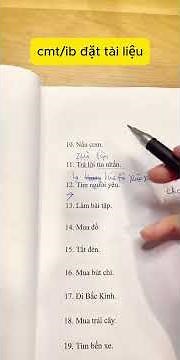 cmt/ib đặt tài liệu
10. Nấu cơm.
11. Trả lời tin nhắn.
12. Tìm người yêu.
13. Làm bài tập.
14. Mua đồ
15. Tắt đèn.
16. Mua bút chì.
17. Đi Bắc Kinh.
18. Mua trái cây.
19. Tìm bến xe.